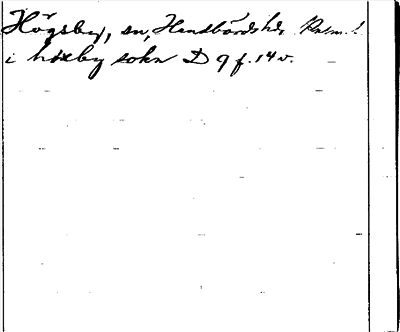 Högsby, sn, Handbörds hd, Kalm. l.
i höxby sokn D 9 f. 14 v.